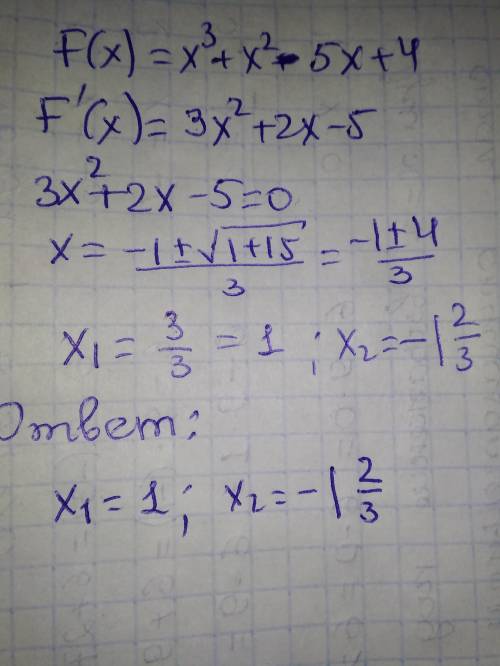 F(x) = x³ + x² - 5x + 4
F'(x) = 3x² + 2x - 5
3x² + 2x - 5 = 0
x = \frac{-1 ± √(1+15)}{3} = \frac{-1 ± 4}{3}
x₁ = \frac{3}{3} = 1 ; x₂ = -1\frac{2}{3}
Ответ:
x₁ = 1 ; x₂ = -1\frac{2}{3}